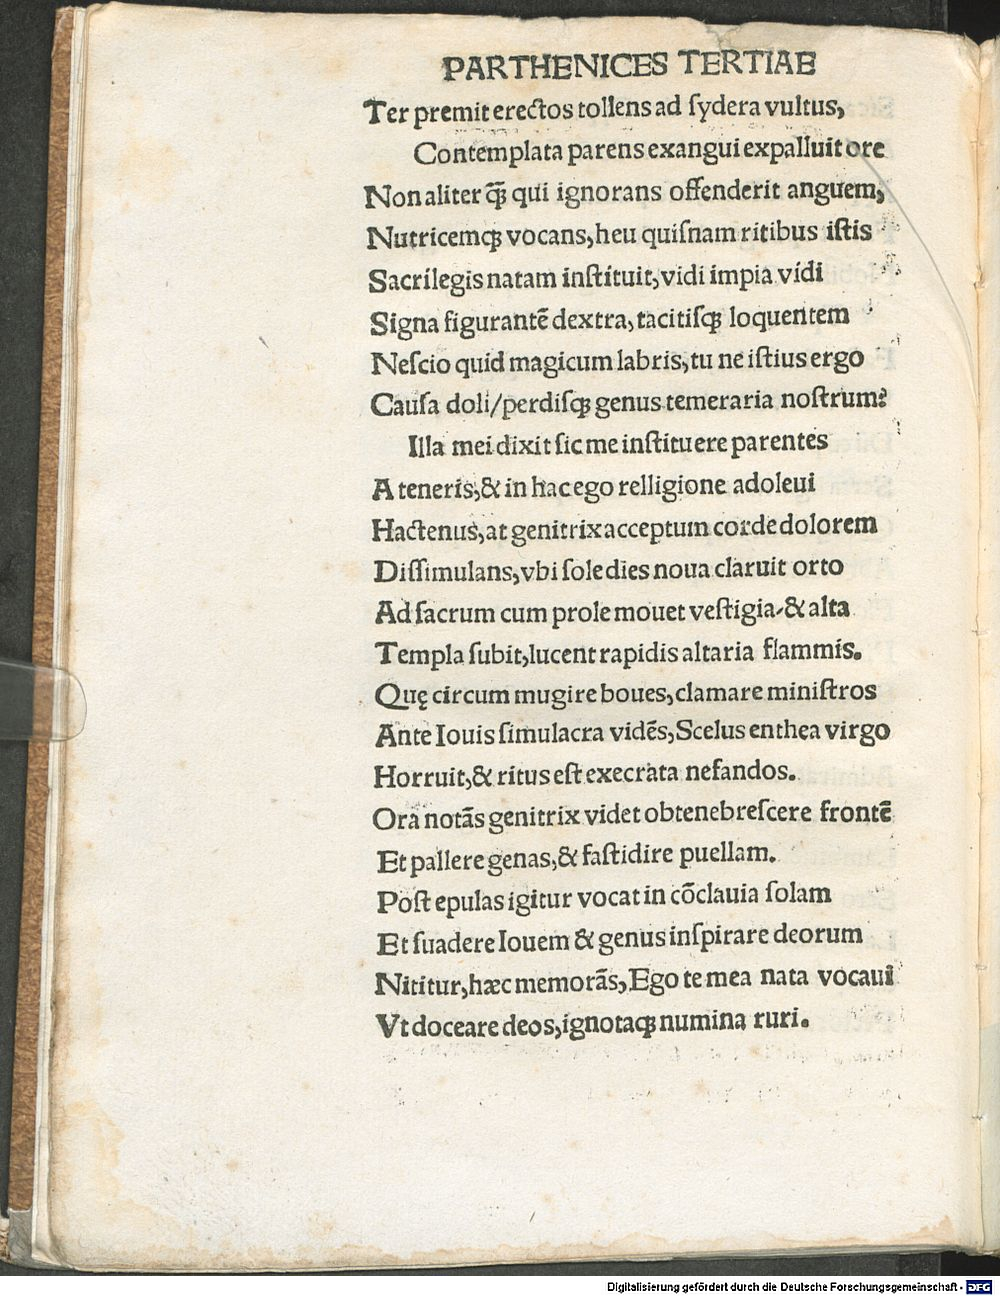 PARTHENICES TERTIAE
Ter premit erectos tollens ad ſydera vultus,
Contemplata parens exangui expalluit ore
Non aliter q̃ꝫ qui ignorans offenderit anguem,
Nutricemqꝫ vocans, heu quiſnam ritibus iſtis
Sacrilegis natam inſtituit, vidi impia vidi
Signa figurantē dextra, tacitiſqꝫ loquentem
Neſcio quid magicum labris, tu ne iſtius ergo
Cauſa doli/perdiſqꝫ genus temeraria noſtrum?
Illa mei dixit ſic me inſtituere parentes
A teneris, & in hac ego relligione adoleui
Hactenus, at genitrix acceptum corde dolorem
Diſſimulans, vbi ſole dies noua claruit orto
Ad ſacrum cum prole mouet veſtigia, & alta
Templa ſubit, lucent rapidis altaria flammis.
Quę circum mugire boues, clamare miniſtros
Ante Iouis ſimulacra vidēs, Scelus enthea virgo
Horruit, & ritus eſt execrata nefandos.
Ora notãs genitrix videt obtenebreſcere frontē
Et pallere genas, & faſtidire puellam.
Poſt epulas igitur vocat in cõclauia ſolam
Et ſuadere Iouem & genus inſpirare deorum
Nititur, hæc memorãs, Ego te mea nata vocaui
Vt doceare deos, ignotaqꝫ numina ruri.
Digitalisierung gefördert durch die Deutsche Forschungsgemeinschaft - DFG